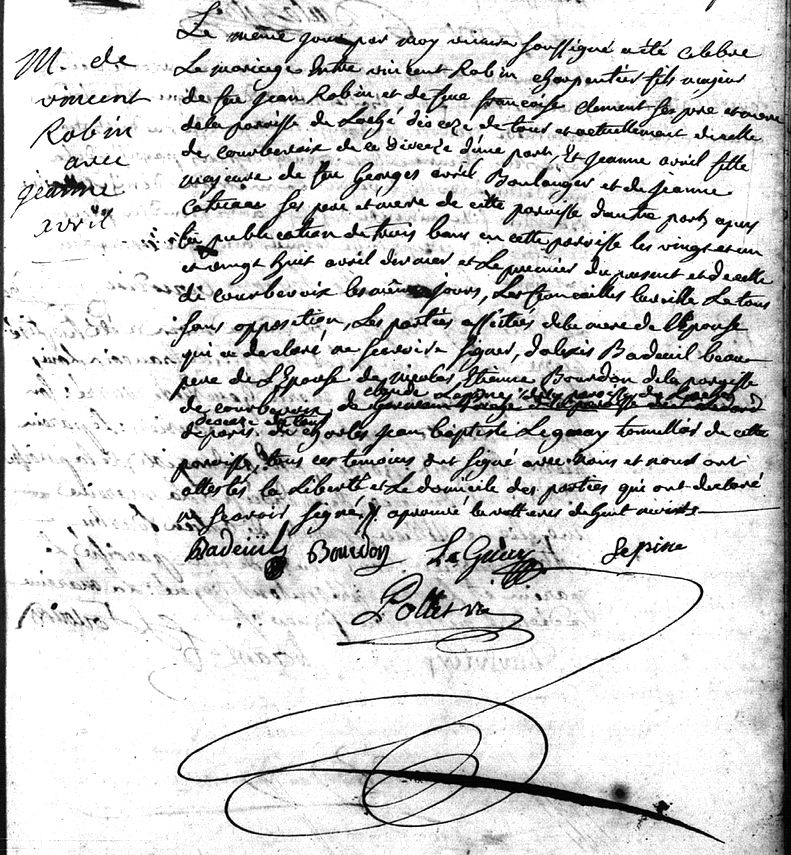 M. de
vincent
Robin
avec
jeanne
avril
Le même jour par moy vicaire soussigné a été celebré
Le mariage entre vincent Robin charpentier fils majeur
de feu jean Robin et de feue françoise clement ses pere et mere
de la paroisse de Loché dioceze de tours et actuellement de celle
de courbevoix de ce diocèze d'une part, Et jeanne avril fille
majeure de feu Georges avril Boulanger et de jeanne
ses pere et mere de cette paroisse d'autre part, apres
la publication de trois bans en cette paroisse les vingt et un
et vingt huit avril dernier et Le premier du present et de celle
de courbevoix les mêmes jours, Les fiancailles la veille Le tous
sans opposition, Les parties assistées de la mere de l'Epouse
qui a declaré ne scavoir signer, d'alexis Badeuil beau
pere de L'Epouse de nicolas, Etienne Bourdon de la paroisse
de courbevoix de
diocèze de tours
de paris de charles jean baptiste Leguay tonnellier de cette
paroisse, tous ces temoins ont signé avec nous et nous ont
attestés la Liberté et Le domicile des parties qui ont declaré
ne scavoir signer. aprouvé la rature de huit mots
Badeüil Bourdon LeGuay Lepine
Pottet vic